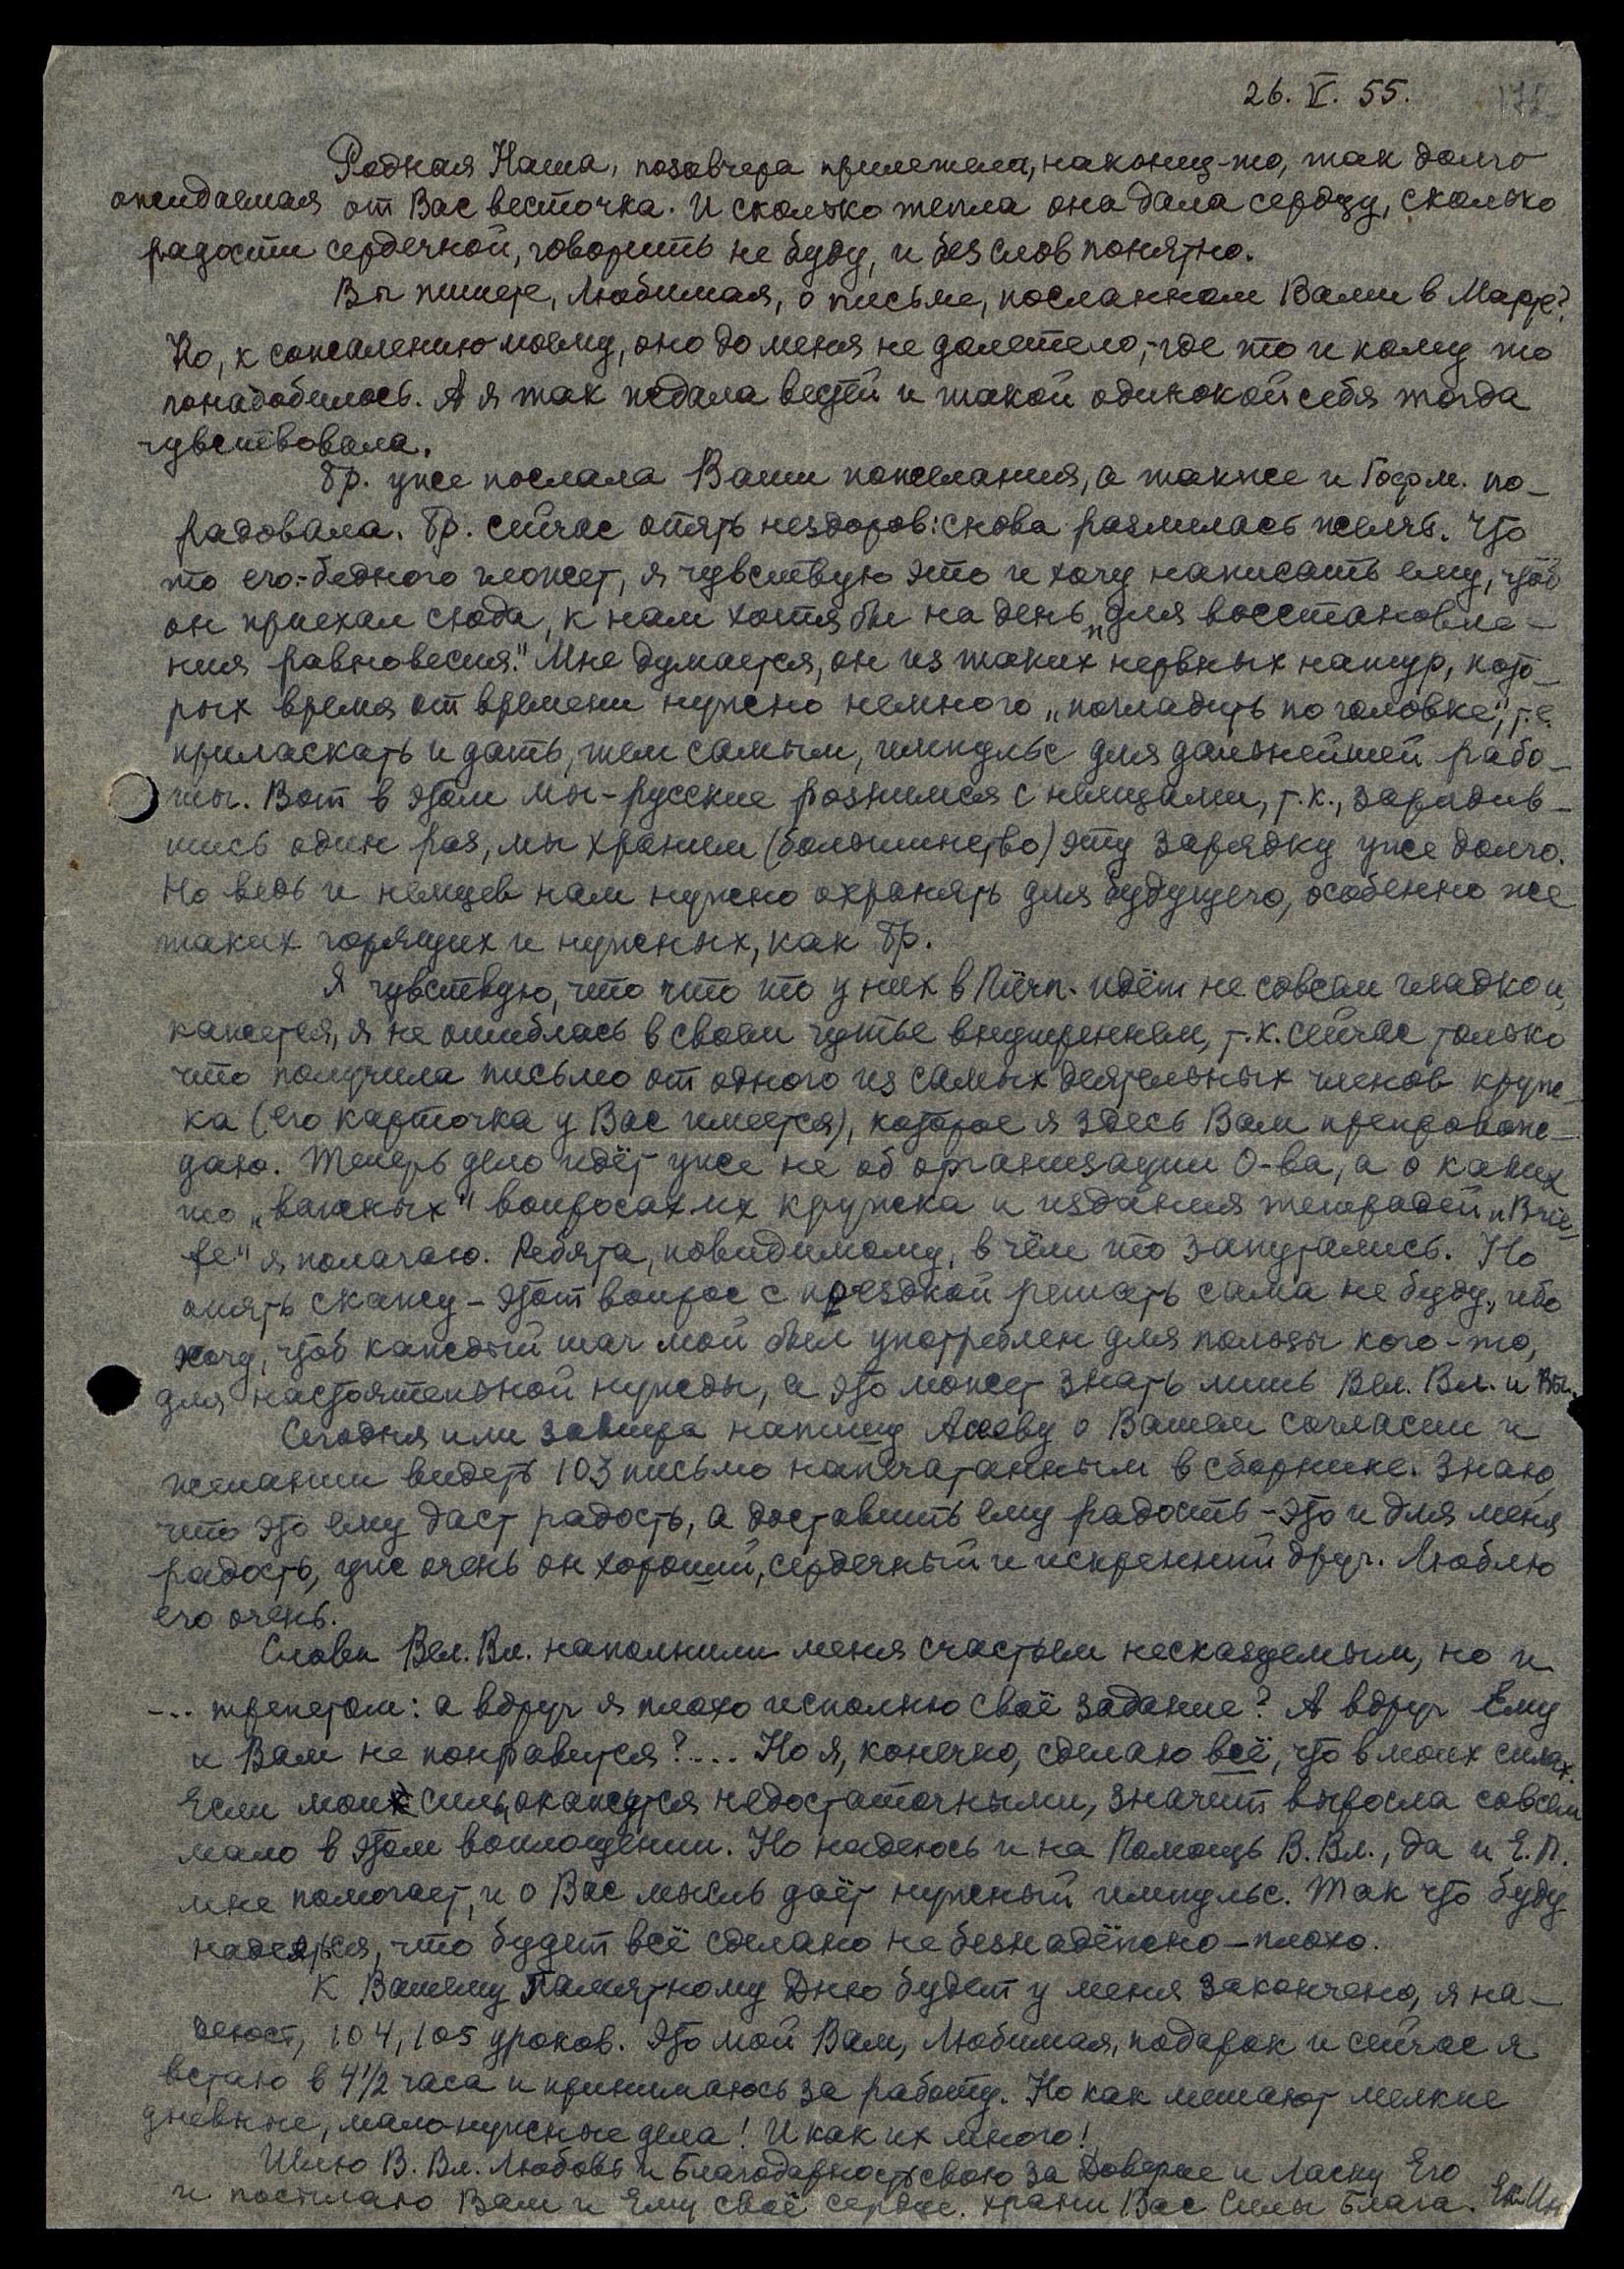 26. V. 55.
Родная Наша, позавчера прилетела, наконец-то, так долго
ожидаемая от Вас весточка. И сколько тепла она дала сердцу, сколько
радости сердечной, говорить не буду, и без слов понятно.
Вы пишете, Любимая, о письме, посланном Вами в Марте?
Но, к сожалению моему, оно до меня не долетело, – где то и кому то
понадобилось. А я так ждала вестей и такой одинокой себя тогда
чувствовала.
Бр. уже послала Ваши пожелания, а также и Гофм. по-
радовала. Бр. сейчас опять нездоров: снова разлилась желчь. Что
то его-бедного гложет, я чувствую это и хочу написать ему, чтоб
он приехал сюда, к нам хотя бы на день „для восстановле-
ния равновесия." Мне думается, он из таких нервных натур, кото-
рых время от времени нужно немного „погладить по головке", т.е.
приласкать и дать, тем самым, импульс для дальнейшей рабо-
ты. Вот в этом мы-русские разнимся с немцами, т.к., зарядив-
шись один раз, мы храним (большинство) эту зарядку уже долго.
Но ведь и немцев нам нужно охранять для будущего, особенно же
таких горящих и нужных, как Бр.
Я чувствую, что что то у них в идёт не совсем гладко и,
кажется, я не ошиблась в своем чутье внутреннем, т.к. сейчас только
что получила письмо от одного из самых деятельных членов круж-
ка (его карточка у Вас имеется), которое я здесь Вам препровож-
даю. Теперь дело идёт уже не об организации О-ва, а о каких
то „важных" вопросах их кружка и издания тетрадей
я полагаю. Ребята, повидимому, в чём то запутались. Но
опять скажу – этот вопрос с поездкой решать сама не буду, ибо
хочу, чтоб каждый шаг мой был употреблен для пользы кого-то,
для настоятельной нужды, а это может знать лишь Вел. Вл. и Вы.
Сегодня или завтра напишу Асееву о Вашем согласии и
желании видеть 103 письмо напечатанным в сборнике. Знаю,
что это ему даст радость, а доставить ему радость – это и для меня
радость, уж очень он хороший, сердечный и искренний друг. Люблю
его очень.
Слова Вел. Вл. наполнили меня счастьем несказуемым, но и
... трепетом: а вдруг я плохо исполню своё задание? А вдруг Ему
и Вам не понравится?.... Но я, конечно, сделаю всё, что в моих силах.
Если мои силы окажутся недостаточными, значит выросла совсем
мало в этом воплощении. Но надеюсь и на Помощь В. Вл., да и Е. П.
мне помогает, и о Вас мысль даёт нужный импульс. Так что буду
надеяться, что будет всё сделано не безнадёжно – плохо.
К Вашему Памятному Дню будет у меня закончено, я на-
деюсь, 104, 105 уроков. Это мой Вам, Любимая, подарок и сейчас я
встаю в 4 1/2 часа и принимаюсь за работу. Но как мешают мелкие
дневные, мало нужные дела! И как их много!
Шлю В. Вл. Любовь и Благодарность свою за Доверие и Ласку Его
и постилаю Вам и Ему своё сердце. Храни Вас Силы Блага.